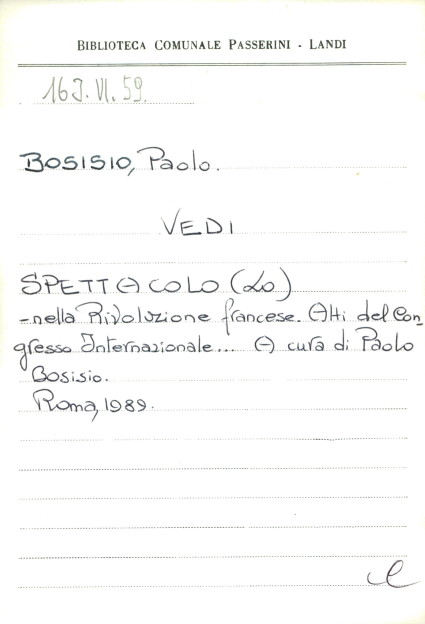 BIBLIOTECA COMUNALE PASSERINI - LANDI
16 J. VI. 59.
BOSISIO, Paolo.
VEDI
SPETTACOLO (Lo)
-nella Rivoluzione francese. Atti del Con-
gresso Internazionale... A cura di Paolo
Bosisio.
Roma, 1989.